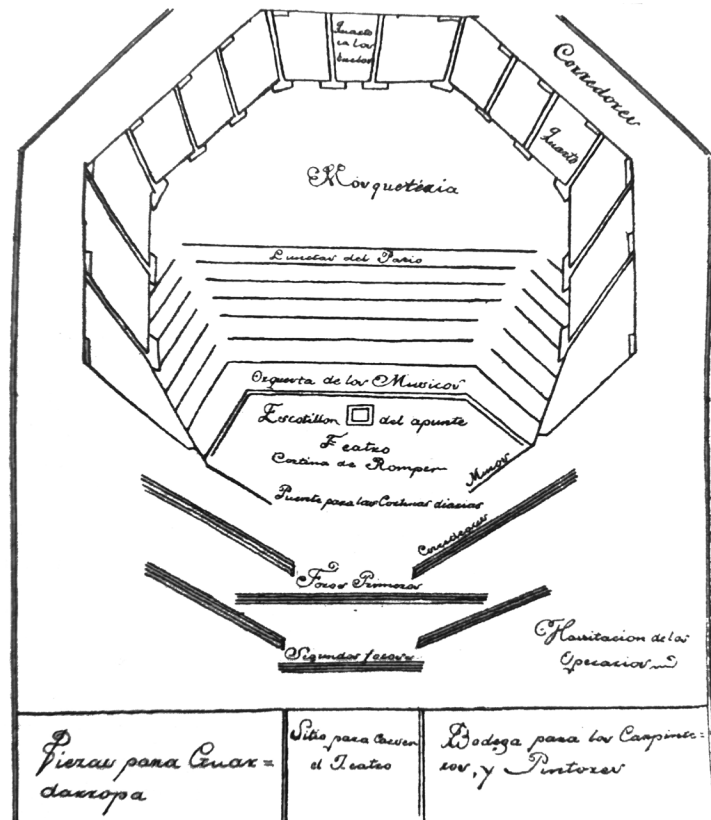 Quarto
en los
buelos
Corredores
Quarto
Mosqueteria
Lunetas del Patio
Orquesta de los Musicos
Escotillon del apunte
Teatro
Cortina de Romper
Muros
Puente para las Cortinas diarias
Foros Primeros
Segundos foros
Havitacion de los
Operarios
Piezas para Guar=
darropa
Sitio para
el Teatro
Bodega para los Carpinte=
ros, y Pintores